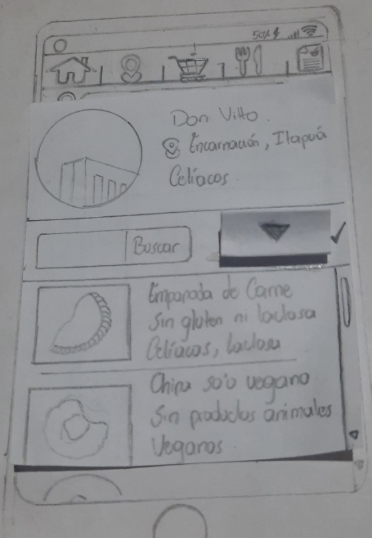 50%
Don Vitto.
Encarnación, Itapúa
Celíacos
Buscar
Empanada de Carne
Sin gluten ni lactosa
Celíacos, lactosa
Chipa so'o vegano
Sin productos animales
Veganos